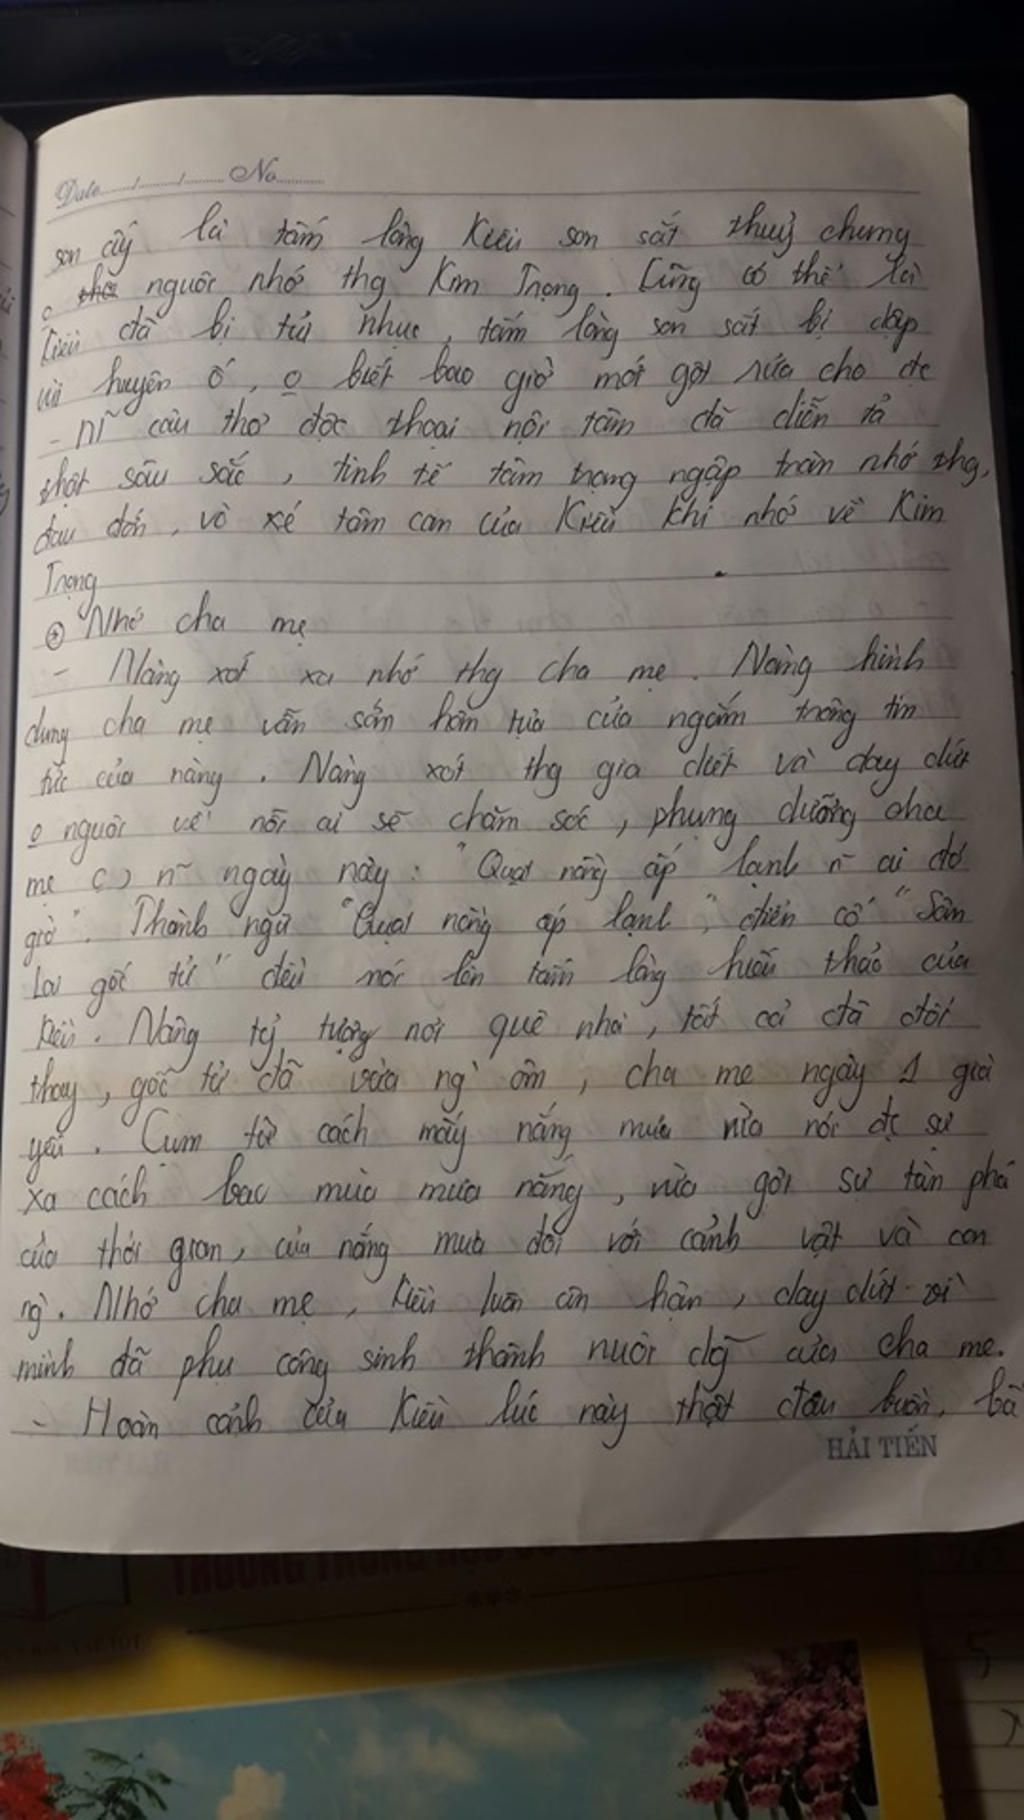 Date....../......../........ No..........
son ấy là tấm lòng Kiều son sắt thuỷ chung
o nguôi nhớ thg Kim Trọng. Cũng có thể là
Kiều đã bị tủi nhục, tấm lòng son sắt bị dập
vùi huyên ố, o biết bao giờ mới gột rửa cho đc
- N~ câu thơ độc thoại nội tâm đã diễn tả
thật sâu sắc, tinh tế tâm trạng ngập tràn nhớ thg,
đau đớn, vò xé tâm can của Kiều khi nhớ về Kim
Trọng
Nhớ cha mẹ
- Nàng xót xa nhớ thg cha mẹ. Nàng hình
dung cha mẹ vẫn sớm hôm tựa cửa ngóng trông tin
tức của nàng. Nàng xót thg gia diết và day dứt
o nguôi về nỗi ai sẽ chăm sóc, phụng dưỡng cha
mẹ n~ ngày này: "Quạt nồng ấp lạnh n~ ai đó
giờ". Thành ngữ "Quạt nồng ấp lạnh", điển cố "Sân
Lai gốc tử" đều nói lên tấm lòng hiếu thảo của
Kiều. Nàng tg tượng nơi quê nhà, tất cả đã đổi
thay, gốc tử đã vừa ng` ôm, cha mẹ ngày 1 già
yếu. Cụm từ cách mấy nắng mưa vừa nói đc sự
xa cách bao mùa mưa nắng, vừa gợi sự tàn phá
của thời gian, của nắng mưa đối với cảnh vật và con
ng`. Nhớ cha mẹ, Kiều luôn ân hận, day dứt vì
mình đã phụ công sinh thành nuôi dg~ của cha mẹ.
- Hoàn cảnh của Kiều lúc này thật đau buồn,
HẢI TIẾN